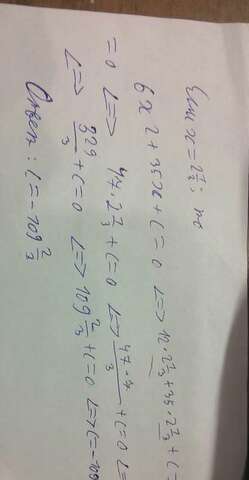 Если x = 2 1/3; то
6x2 + 35x + C = 0 <=> 12 · 2 1/3 + 35 · 2 1/3 + C =
= 0 <=> 47 · 2 1/3 + C = 0 <=> 47 · 7/3 + C = 0 <=
<=> 329/3 + C = 0 <=> 109 2/3 + C = 0 <=> C = -109
Ответ: C = -109 2/3